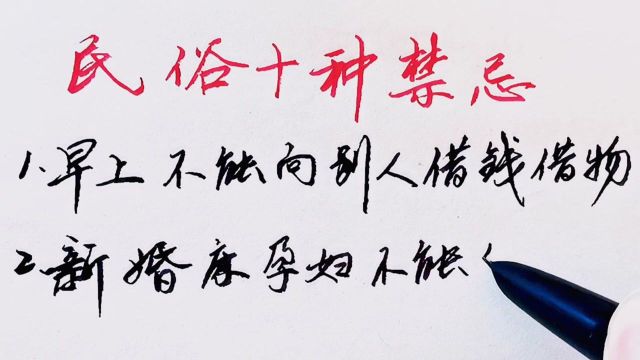 民俗十种禁忌
1.早上不能向别人借钱借物
2.新婚床孕妇不能